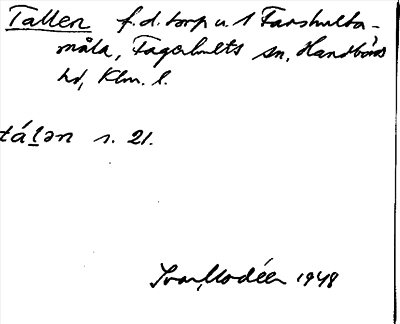 Tallen f.d. torp u. 1 Farshulta-
måla, Fagerhults sn, Handbörds
hd, Klm. l.
tálən s. 21.
Ivar Modéer 1948